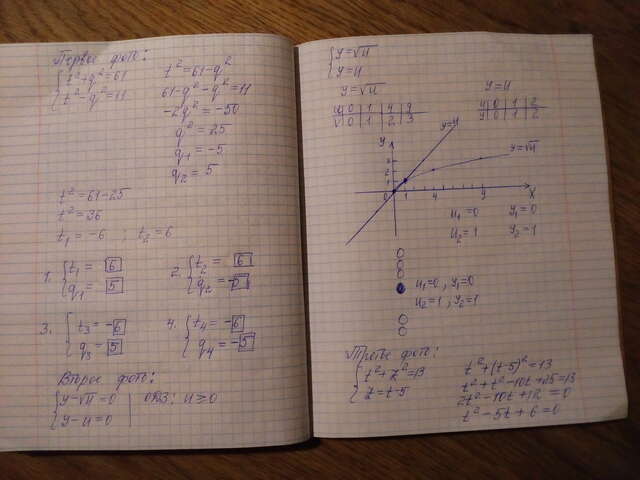 Первое фото:
{t² + q² = 61
{t² - q² = 11
t² = 61 - q²
61 - q² - q² = 11
-2q² = -50
q² = 25
q₁ = -5
q₂ = 5
t² = 61 - 25
t² = 36
t₁ = -6 ; t₂ = 6
1. {t₁ = 6
{q₁ = 5
2. {t₂ = 6
3. {t₃ = -6
{q₃ = 5
4. {t₄ = -6
{q₄ = -5
Второе фото:
{y - √u = 0
{y - u = 0
ОДЗ: u ≥ 0
{y = √u
{y = u
y = √u
u 0 1 4 9
0 1 2 3
y = u
u 0 1 2
y 0 1 2
y
y=u
y=√u
3
2
1
0 1 4 9 x
u₁ = 0 y₁ = 0
u₂ = 1 y₂ = 1
u₁=0 ; y₁=0
u₂=1 ; y₂=1
Третье фото:
{t² + z² = 13
{z = t - 5
t² + (t-5)² = 13
t² + t² - 10t + 25 = 13
2t² - 10t + 12 = 0
t² - 5t + 6 = 0